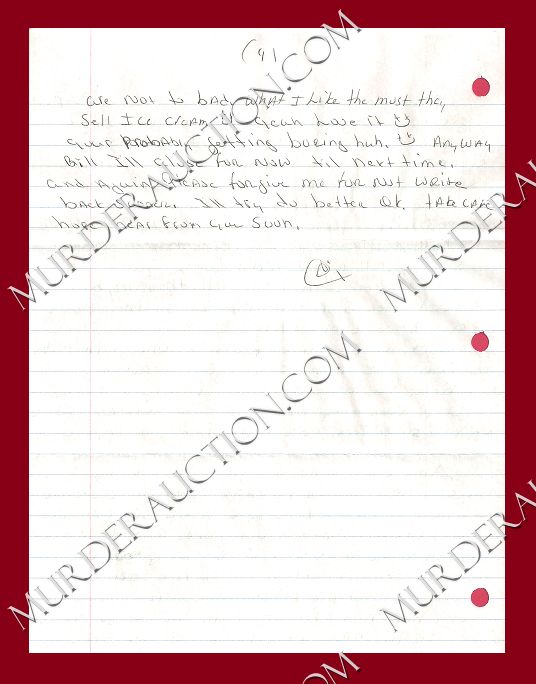 (4)
are not to bad, what I Like the must they
Sell Ice cream yean Love it
your Probably getting boring huh. AnyWAY
Bill I'll close for now till next time.
and Again Please forgive me for not write
back sooner. I'll try do better Ok. take care
hope hear from you soon.
MURDERAUCTION.COM
MURDERAUCTION.COM
MURDERAUCTION.COM
MURDERAUCTION.COM